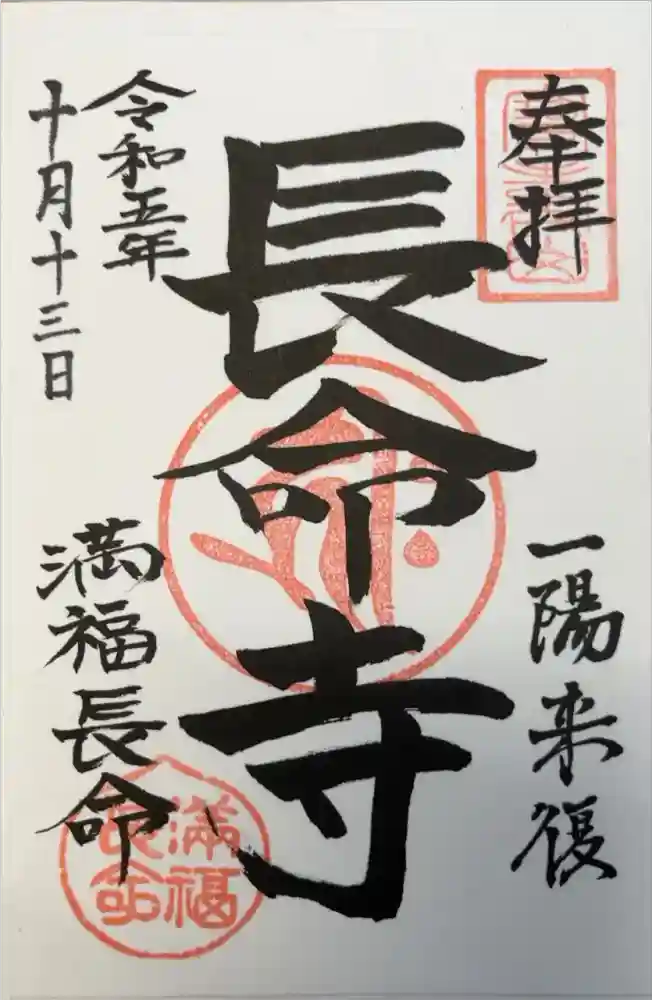 奉拝
一陽来復
長命寺
令和五年
十月十三日
満福長命
滿福
長命